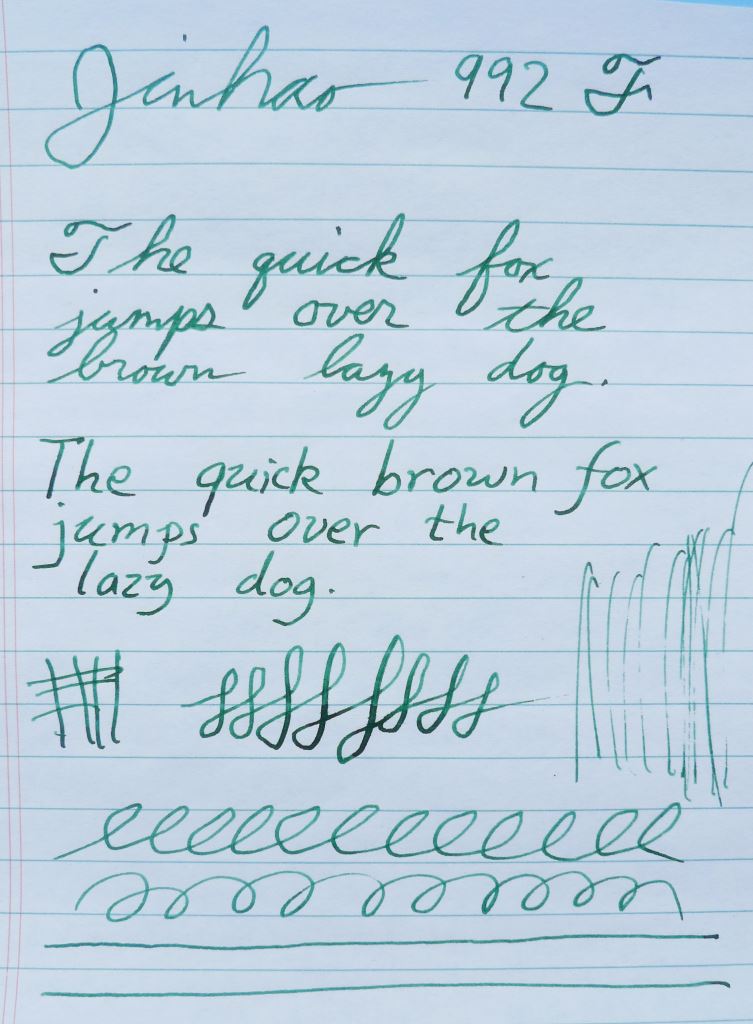 Jinhao 992 F
The quick fox
jumps over the
brown lazy dog.
The quick brown fox
jumps over the
lazy dog.